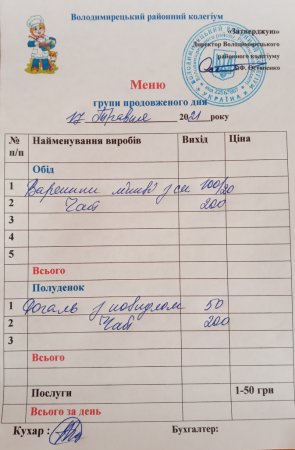 Володимирецький районний колегіум
«Затверджую»
Директор Володимирецького
районного колегіуму
Меню
групи продовженого дня
17 Травня 2021 року
№ п/п Найменування виробів Вихід Ціна
Обід
1 Вареники ліниві з см 100/20
2 Чай 200
3
4
5
Всього
Полуденок
1 Рогаль з повидлом 50
2 Чай 200
3
Всього
Послуги 1-50 грн
Всього за день
Кухар : Бухгалтер: